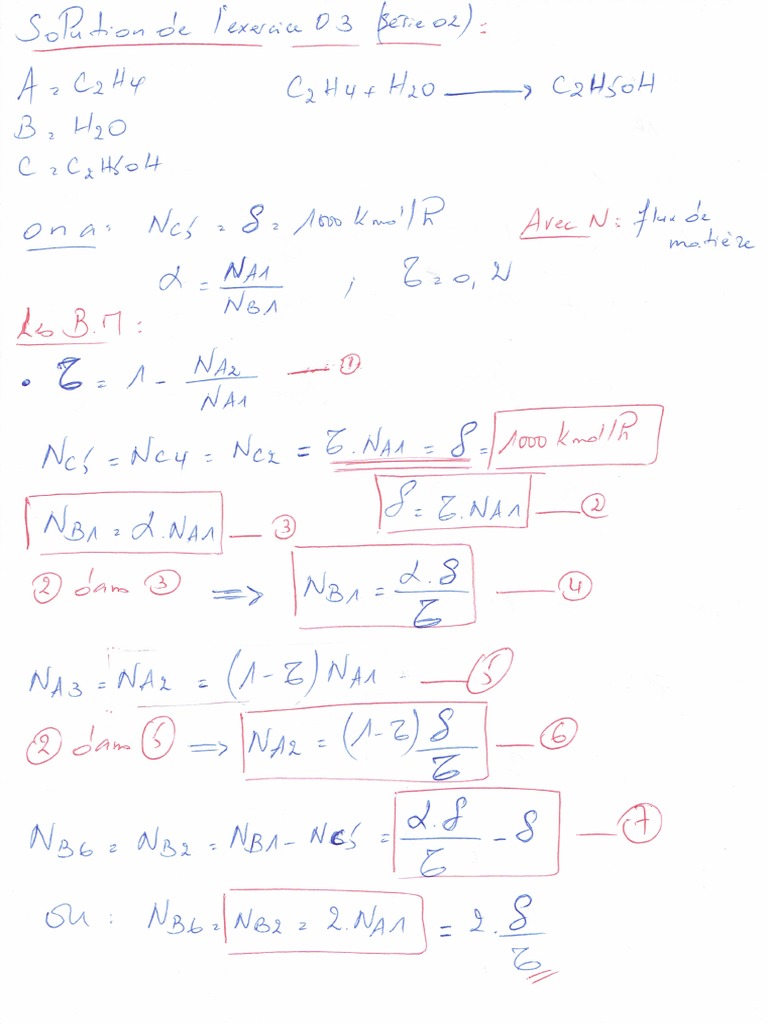 Solution de l'exercice 03 (série 02) :
A = C2H4 C2H4 + H2O ⟶ C2H5OH
B = H2O
C = C2H5OH
on a : NC5 = δ = 1000 kmol/h Avec N : flux de matière
α = NA1/NB1 ; τ = 0,2
Les B.M :
• τ = 1 - NA2/NA1 — ①
NC5 = NC4 = NC2 = τ.NA1 = δ = 1000 kmol/h
NB1 = α.NA1 — ③ δ = τ.NA1 — ②
② dans ③ => NB1 = α.δ/τ — ④
NA3 = NA2 = (1-τ) NA1 — ⑤
② dans ⑤ => NA2 = (1-τ) δ/τ — ⑥
NB6 = NB2 = NB1 - NC5 = α.δ/τ - δ — ⑦
ou : NB6 = NB2 = 2.NA1 = 2.δ/τ